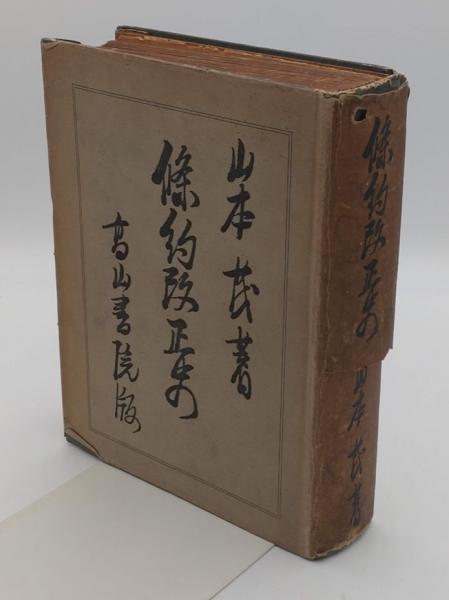 山本茂著
條約改正史
高山書院版
條約改正史
山本茂著